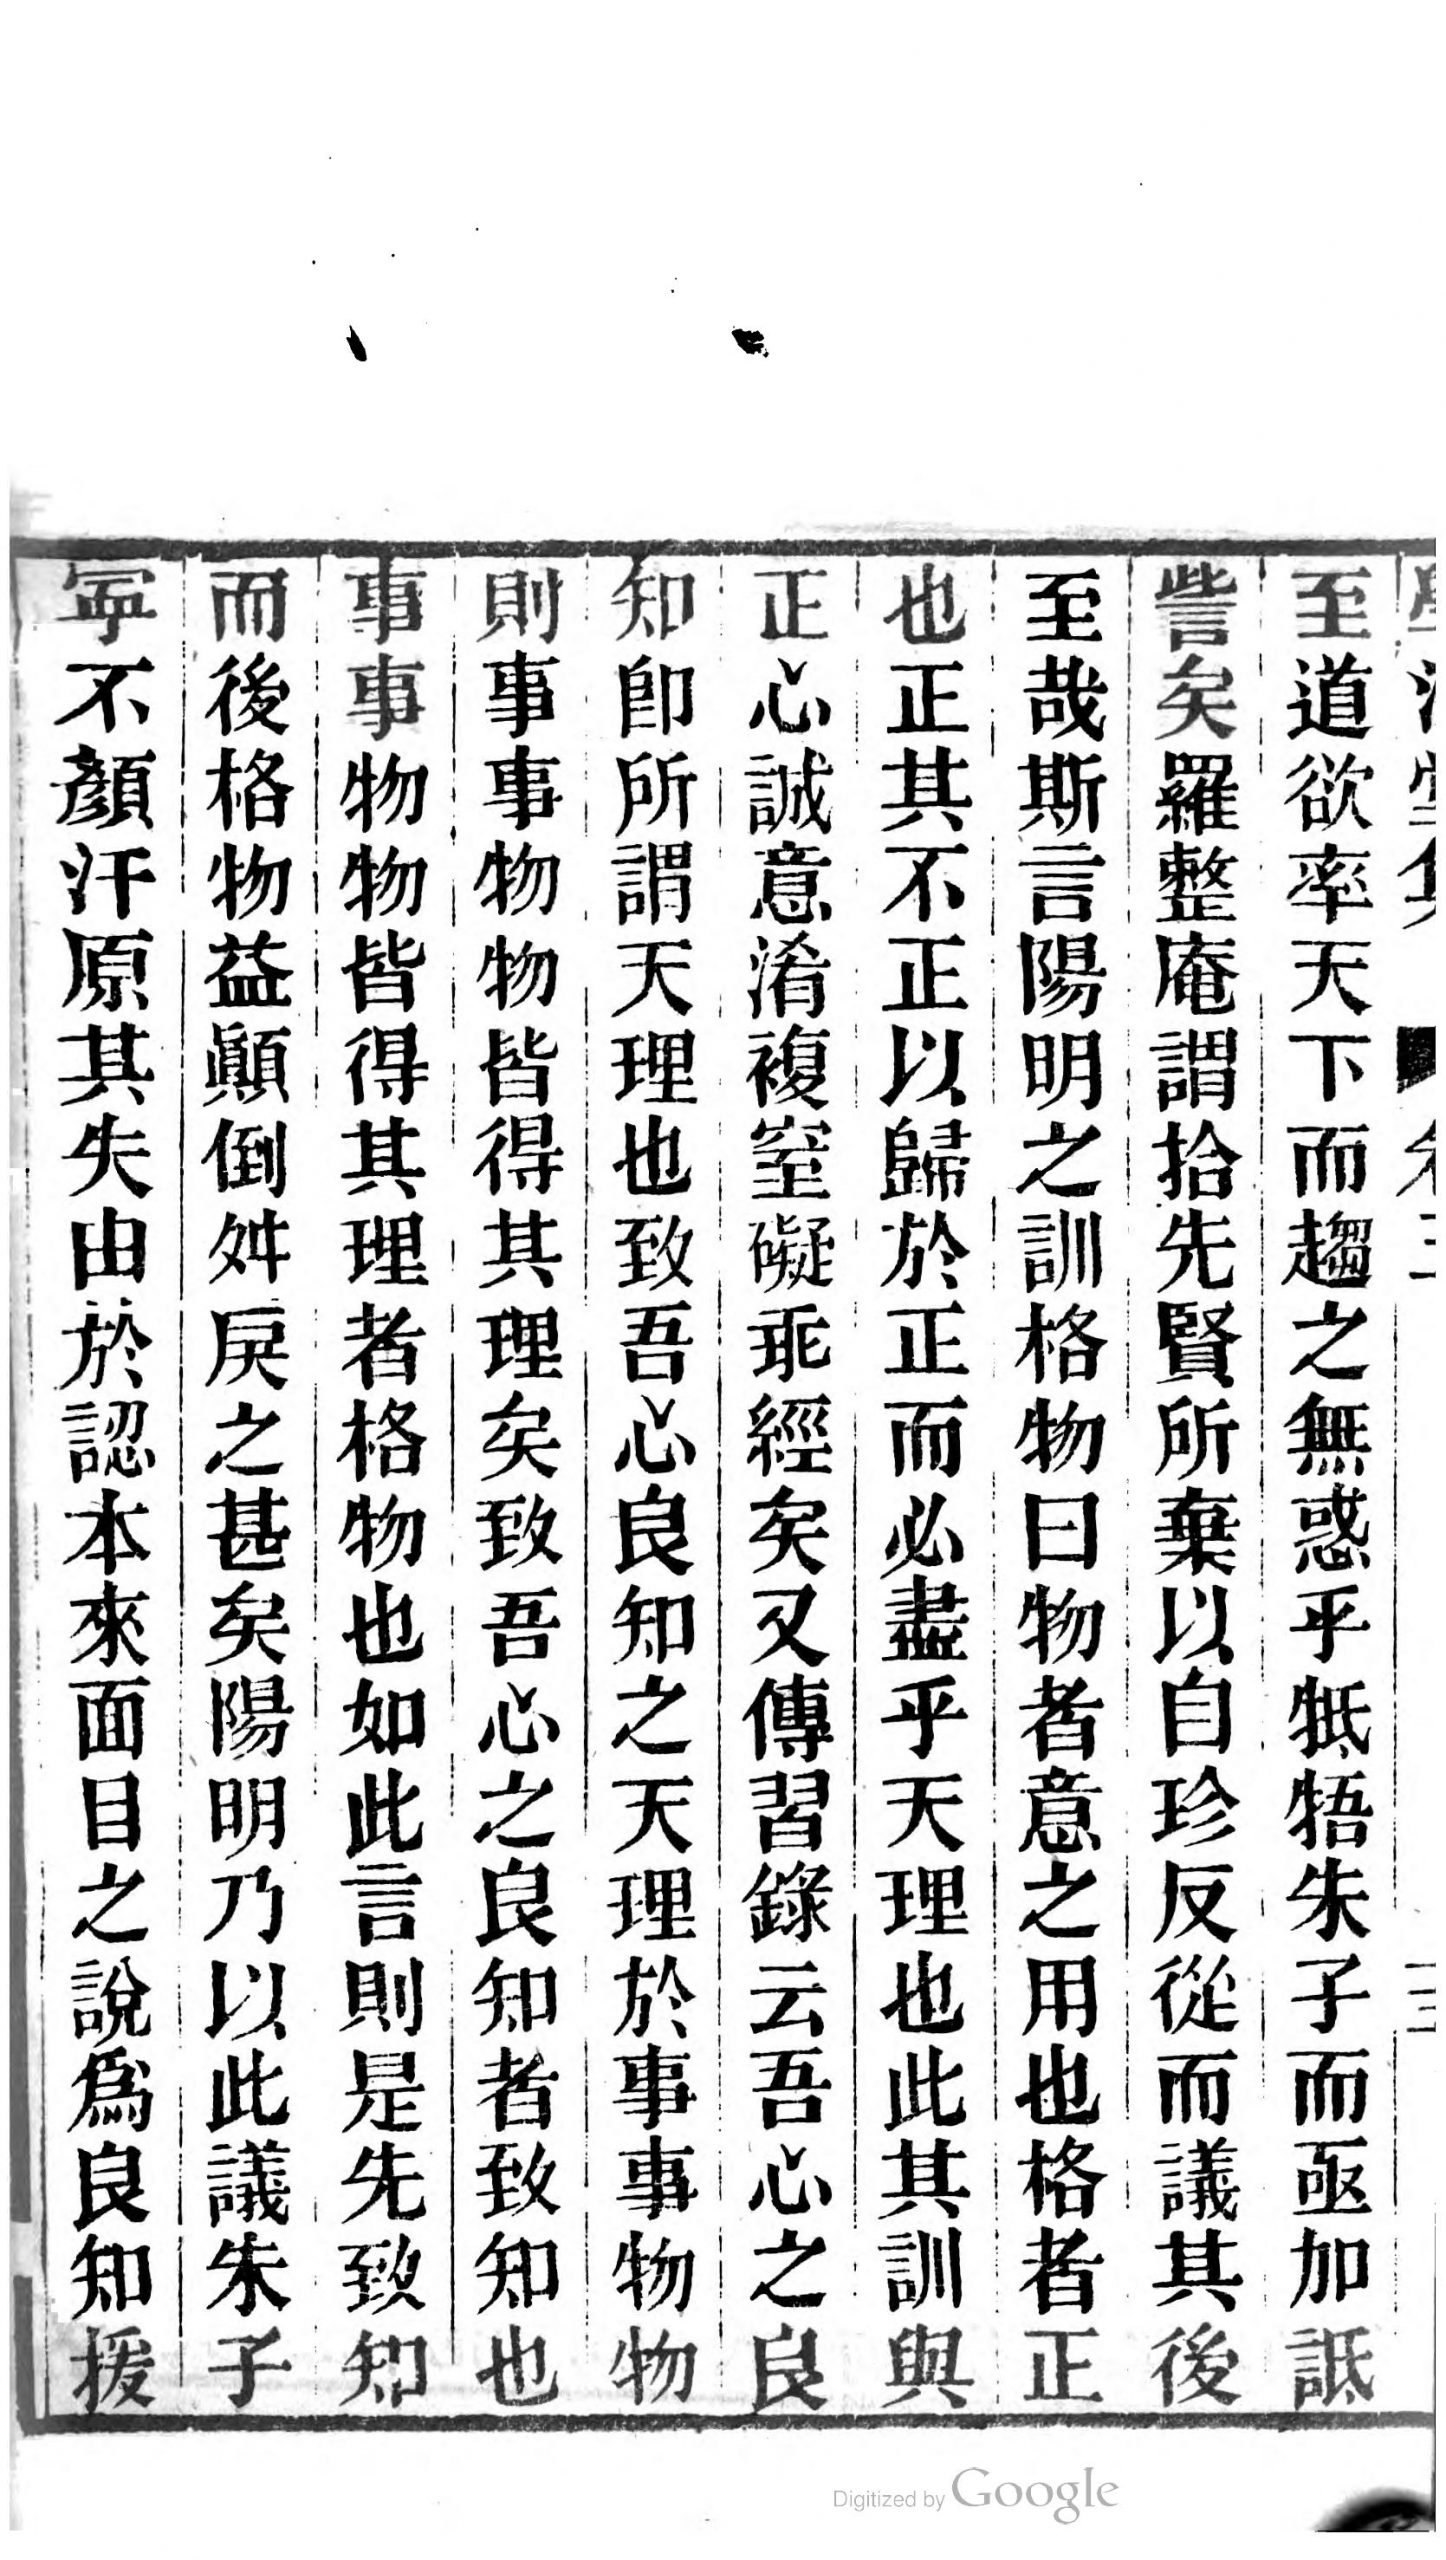 至道欲率天下而趨之無惑乎牴牾朱子而亟加詆
訾矣羅整庵謂拾先賢所棄以自珍反從而議其後
至哉斯言陽明之訓格物曰物者意之用也格者正
也正其不正以歸於正而必盡乎天理也此其訓與
正心誠意淆複窒礙乖經矣又傳習錄云吾心之良
知卽所謂天理也致吾心良知之天理於事事物物
則事事物物皆得其理矣致吾心之良知者致知也
事事物物皆得其理者格物也如此言則是先致知
而後格物益顚倒舛戾之甚矣陽明乃以此議朱子
寧不顏汗原其失由於認本來面目之說爲良知援
Digitized by Google